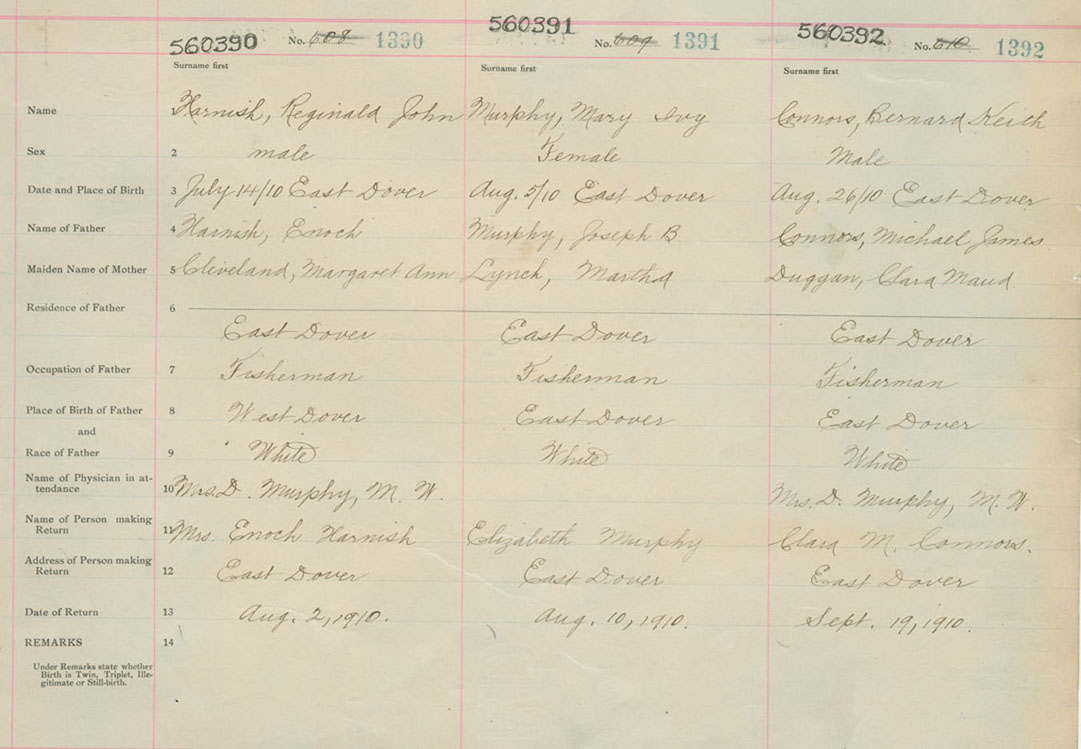 560390 No. 608 1390 560391 No. 609 1391 560392 No. 610 1392
Surname first Surname first Surname first
Name 1 Harnish, Reginald John Murphy, Mary Ivy Connors, Bernard Keith
Sex 2 male Female Male
Date and Place of Birth 3 July 14/10 East Dover Aug. 5/10 East Dover Aug. 26/10 East Dover
Name of Father 4 Harnish, Enoch Murphy, Joseph B. Connors, Michael James
Maiden Name of Mother 5 Cleveland, Margaret Ann Lynch, Martha Duggan, Clara Maud.
Residence of Father 6
East Dover East Dover East Dover
Occupation of Father 7 Fisherman Fisherman Fisherman
Place of Birth of Father 8 West Dover East Dover East Dover
and
Race of Father 9 White White White
Name of Physician in at-
tendance 10 Mrs. D. Murphy, M. W. Mrs. D. Murphy, M. W.
Name of Person making
Return 11 Mrs. Enoch Harnish Elizabeth Murphy Clara M. Connors.
Address of Person making
Return 12 East Dover East Dover East Dover
Date of Return 13 Aug. 2, 1910. Aug. 10, 1910. Sept. 19, 1910.
REMARKS 14
Under Remarks state whether
Birth is Twin, Triplet, Ille-
gitimate or Still-birth.